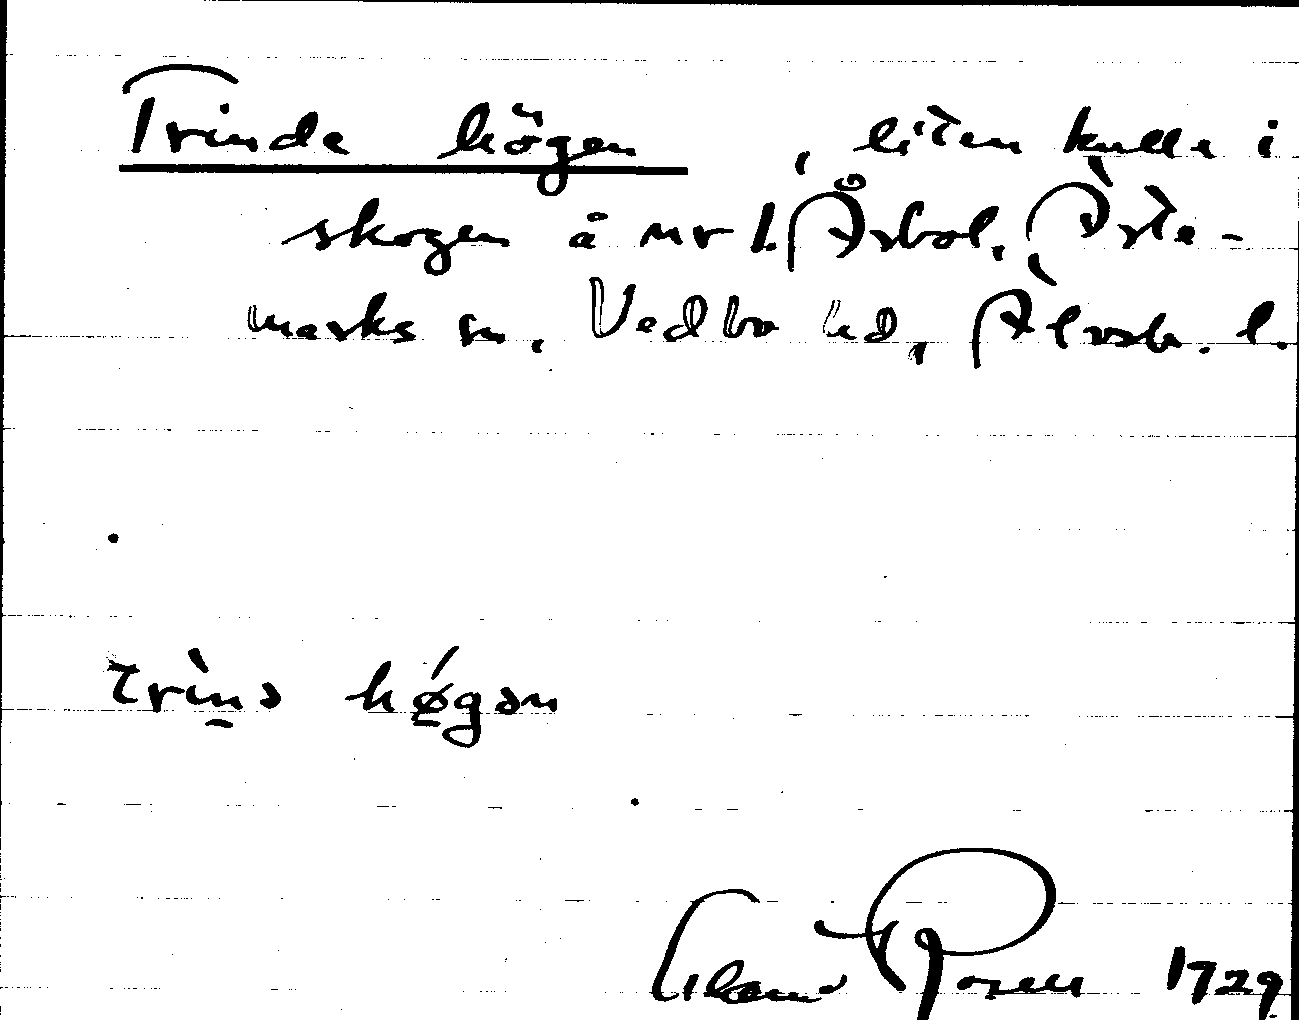 Trinde högen, liten kulle i
skogen å nr 1. Årbol, Ärte-
marks sn, Vedbo hd, Älvsb. l.
trìnə hø̀gən
Rosell 1929